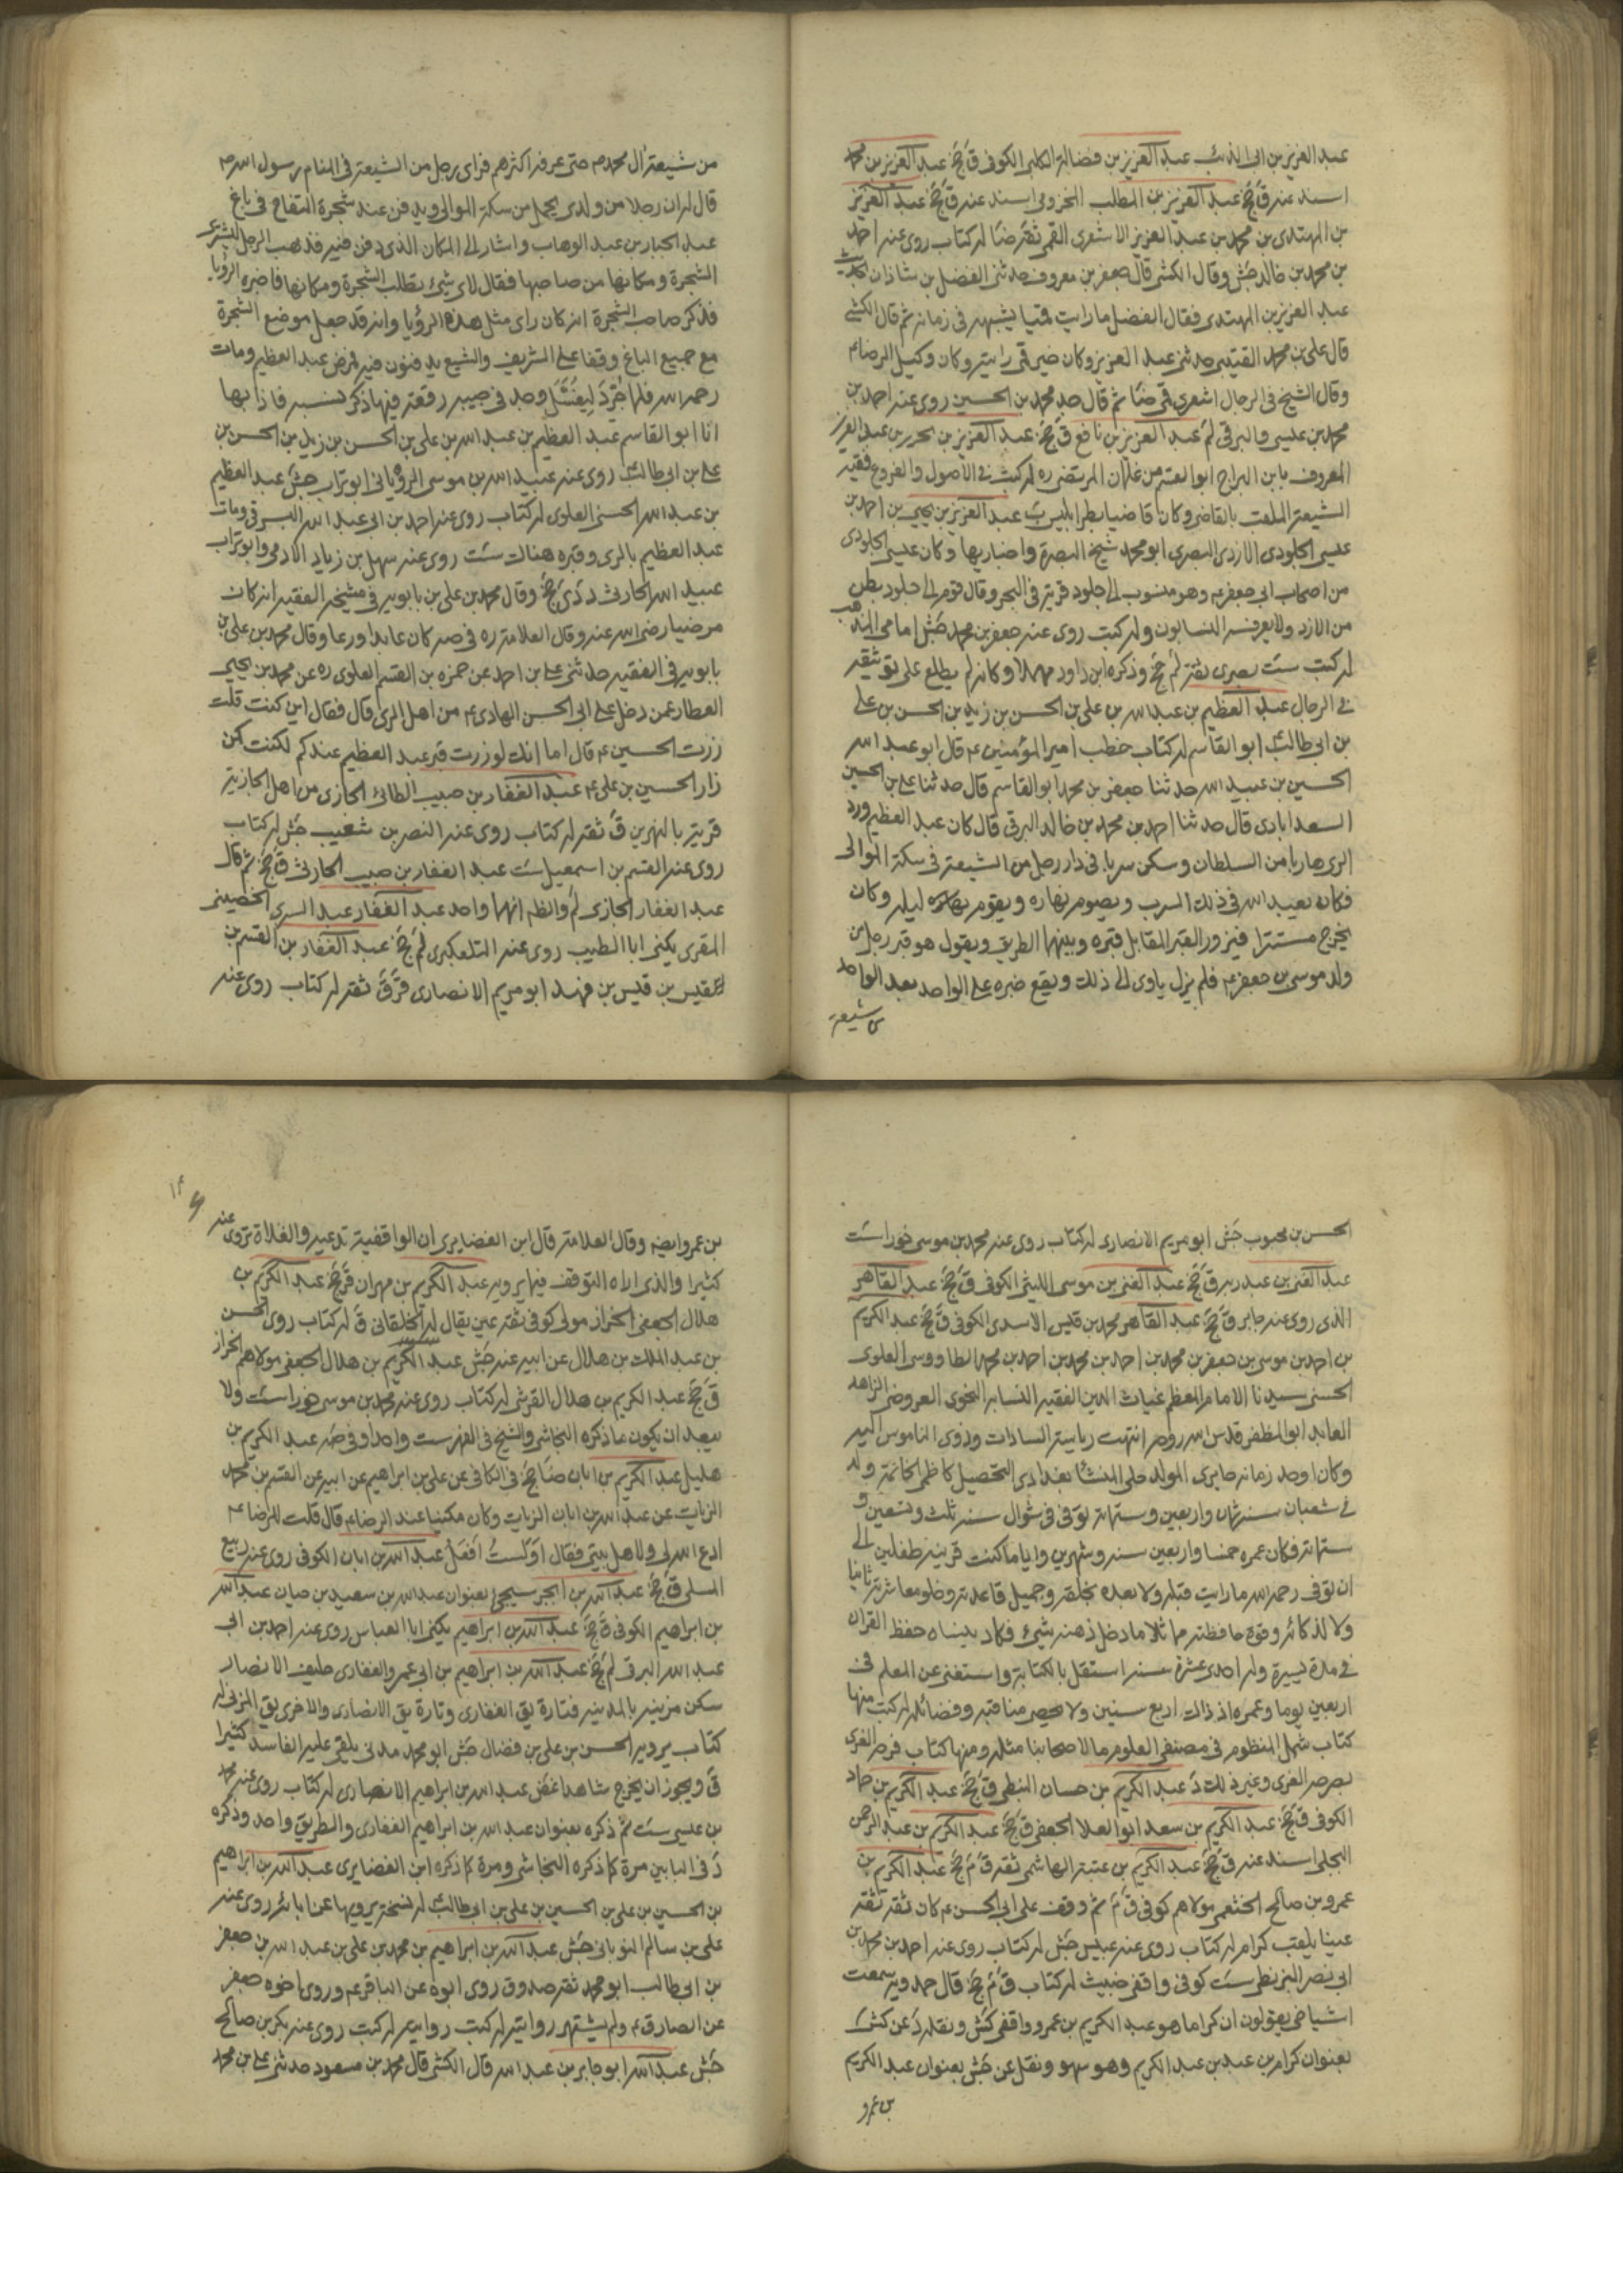 عبد العزيز بن ابى الذئب عبد العزيز بن فضالة الكلبى الكوفى ق جخ عبد العزيز بن محمد
اسند عنه ق جخ عبد العزيز بن المطلب المخزومى اسند عنه ق جخ عبد العزيز
بن المهتدى بن محمد بن عبد العزيز الاشعرى القمى ثقة ضا له كتاب روى عنه احمد
بن محمد بن خالد جش وقال الكشى قال جعفر بن معروف حدثنى الفضل بن شاذان بحديث
عبد العزيز بن المهتدى فقال الفضل ما رايت قميا يشبهه فى زمانه ثم قال الكشى
قال على بن محمد القتيبى حدثنى عبد العزيز وكان خير قمى رايته وكان وكيل الرضا ع
وقال الشيخ فى الرجال اشعرى قمى ضا ثم قال جد محمد بن الحسين روى عنه احمد بن
محمد بن عيسى والبرقى لم عبد العزيز بن نافع ق جخ عبد العزيز بن نحرير بن عبد العزيز
المعروف بابن البراج ابو القسم من غلمان المرتضى ره له كتب فى الاصول والفروع فقيه
الشيعة الملقب بالقاضى وكان قاضيا بطرابلس ب عبد العزيز بن يحيى بن احمد بن
عيسى الجلودى الازدى البصرى ابو محمد شيخ البصرة واخباريها وكان عيسى الجلودى
من اصحاب ابى جعفر ع وهو منسوب الى جلود قرية فى البحر وقال قوم الى جلود بطن
من الازد ولا يعرفه النسابون وله كتب روى عنه جعفر بن محمد جش امامى المذهب
له كتب ست بصرى ثقة لم جخ وذكره ابن داود مهملا وكانه لم يطلع على توثيقه
فى الرجال عبد العظيم بن عبد الله بن على بن الحسن بن زيد بن الحسن بن على
بن ابى طالب ابو القاسم له كتاب خطب امير المؤمنين ع قال ابو عبد الله
الحسين بن عبيد الله حدثنا جعفر بن محمد ابو القاسم قال حدثنا على بن الحسين
السعدابادى قال حدثنا احمد بن محمد بن خالد البرقى قال كان عبد العظيم ورد
الرى هاربا من السلطان وسكن سربا فى دار رجل من الشيعة فى سكة الموالى
فكان يعبد الله فى ذلك السرب ويصوم نهاره ويقوم ليله وكان
يخرج مستترا فيزور القبر المقابل قبره وبينهما الطريق ويقول هو قبر رجل من
ولد موسى بن جعفر ع فلم يزل ياوى الى ذلك ويقع خبره على الواحد بعد الواحد
من شيعة
من شيعة آل محمد ص حتى عرفه اكثرهم فراى رجل من الشيعة فى المنام رسول الله ص
قال له ان رجلا من ولدى يحمل من سكة الموالى ويدفن عند شجرة التفاح فى باغ
عبد الجبار بن عبد الوهاب واشار الى المكان الذى دفن فيه فذهب الرجل ليشترى
الشجرة ومكانها من صاحبها فقال لاى شىء تطلب الشجرة ومكانها فاخبره الرؤيا
فذكر صاحب الشجرة انه كان راى مثل هذه الرؤيا وانه قد جعل موضع الشجرة
مع جميع الباغ وقفا على الشريف والشيعة يدفنون فيه فمرض عبد العظيم ومات
رحمه الله فلما جُرّد لِيُغَسَّل وجد فى جيبه رقعة فيها ذكر نسبه فاذا بها
انا ابو القاسم عبد العظيم بن عبد الله بن على بن الحسن بن زيد بن الحسن بن
على بن ابى طالب روى عنه عبيد الله بن موسى الرؤيانى ابو تراب جش عبد العظيم
بن عبد الله الحسنى العلوى له كتاب روى عنه احمد بن ابى عبد الله البرقى ومات
عبد العظيم بالرى وقبره هناك ست روى عنه سهل بن زياد الادمى وابو تراب
عبيد الله الحارثى د دى جخ وقال محمد بن على بن بابويه فى مشيخة الفقيه انه كان
مرضيا رضى الله عنه وقال العلامة ره فى صه كان عابدا ورعا وقال محمد بن على بن
بابويه فى الفقيه حدثنى على بن احمد عن حمزه بن القسم العلوى ره عن محمد بن يحيى
العطار عمن دخل على ابى الحسن الهادى ع من اهل الرى قال فقال اين كنت قلت
زرت الحسين ع قال اما انك لو زرت قبر عبد العظيم عندكم لكنت كمن
زار الحسين بن على ع عبد الغفار بن حبيب الطائى الجازى من اهل الجازية
قرية بالنهرين ق ثقة له كتاب روى عنه النضر بن شعيب جش له كتاب
روى عنه القسم بن اسمعيل ست عبد الغفار بن حبيب الحارثى ق جخ ثم قال
عبد الغفار الجازى لم واظنه انهما واحد عبد الغفار عبد السرى الخضينى
المقرى يكنى ابا الطيب روى عنه التلعكبرى لم جخ عبد الغفار بن القسم بن
قيس بن قيس بن فهد ابو مريم الانصارى قر ق ثقة له كتاب روى عنه
الحسن بن محبوب جش ابو مريم الانصارى له كتاب روى عنه محمد بن موسى خوراست
عبد الغنى بن عبد ربه ق جخ عبد الغنى بن موسى الليثى الكوفى ق جخ عبد القاهر
الذى روى عنه جابر ق جخ عبد القاهر محمد بن قيس الاسدى الكوفى ق جخ عبد الكريم
بن احمد بن موسى بن جعفر بن محمد بن احمد بن محمد بن احمد بن محمد الطاووسى العلوى
الحسنى سيدنا الامام المعظم غياث الدين الفقيه النسابة النحوى العروضى الزاهد
العابد ابو المظفر قدس الله روحه انتهت رياسة السادات وذوى الناموس اليه
وكان اوحد زمانه حايرى المولد حلى المنشأ بغدادى التحصيل كاظمى الخاتمة ولد
فى شعبان سنة ثمان واربعين وستمائة توفى فى شوال سنة ثلث وتسعين و
ستمائة فكان عمره خمسا واربعين سنة وشهرين واياما كنت قرينه طفلين الى
ان توفى رحمه الله ما رايت قبله ولا بعده بخلقه وجميل قاعدته وحلو معاشرته ثانيا
ولا لذكائه وقوة حافظته مماثلا ما دخل ذهنه شىء فكاد ينساه حفظ القران
فى مدة يسيرة وله احدى عشرة سنة استقل بالكتابة واستغنى عن المعلم فى
اربعين يوما وعمره اذ ذاك اربع سنين ولا يحصى مناقبه وفضائله له كتب منها
كتاب شمل المنظوم فى مصنفى العلوم ما لاصحابنا مثله ومنها كتاب فرحة الغرى
بصرحة الغرى وغير ذلك د عبد الكريم بن حسان النبطى ق جخ عبد الكريم بن حماد
الكوفى ق جخ عبد الكريم بن سعد ابو العلا الجعفى ق جخ عبد الكريم بن عبد الرحمن
البجلى اسند عنه ق جخ عبد الكريم بن عتبة الهاشمى ثقة ق م جخ عبد الكريم بن
عمرو بن صالح الخثعمى مولاهم كوفى ق م ثم وقف على ابى الحسن ع كان ثقة ثقة
عينا يلقب كرام له كتاب روى عنه عبيس جش له كتاب روى عنه احمد بن محمد بن
ابى نصر البزنطى ست كوفى واقفى خبيث له كتاب ق م جخ قال حمدويه سمعت
اشياخى يقولون ان كراما هو عبد الكريم بن عمرو واقفى كش ونقله د عن كش
بعنوان كرام بن عبد بن عبد الكريم وهو سهو ونقل عن جش بعنوان عبد الكريم
بن عمرو
بن عمرو ايضا وقال العلامة قال ابن الغضايرى ان الواقفية تدعيه والغلاة تروى عنه
كثيرا والذى اراه التوقف فيما يرويه عبد الكريم بن مهران ق جخ عبد الكريم بن
هلال الجعفى الخزاز مولى كوفى ثقة عين يقال له الخلقانى ق له كتاب روى الحسن
بن عبد الملك بن هلال عن ابيه عنه جش عبد الكريم بن هلال الجعفى مولاهم الخزاز
ق جخ عبد الكريم بن هلال القرشى له كتاب روى عنه محمد بن موسى خوراست ولا
يبعد ان يكون ما ذكره النجاشى والشيخ فى الفهرست واحدا وفى ضه عبد الكريم بن
هليل عبد الكريم بن ابان ضا جخ فى الكافى عن على بن ابراهيم عن ابيه عن القسم بن محمد
الزيات عن عبد الله بن ابان الزيات وكان مكينا عند الرضا ع قال قلت للرضا ع
ادع الله لى ولاهل بيتى فقال اَوَلَستُ اَفعَلُ عبد الله بن ابان الكوفى روى عنه ربيع
المسلى ق جخ عبد الله بن ابجر سيجىء بعنوان عبد الله بن سعيد بن حيان عبد الله
بن ابراهيم الكوفى ق جخ عبد الله بن ابراهيم يكنى ابا العباس روى عنه احمد بن ابى
عبد الله البرقى لم جخ عبد الله بن ابراهيم بن ابى عمرو الغفارى حليف الانصار
سكن مزينة بالمدينة فتارة يق الغفارى وتارة يق الانصارى والاخرى يق المزنى له
كتاب يرويه الحسن بن على بن فضال جش ابو محمد مدنى يلقى عليه الفاسد كثيرا
ق ويجوز ان يخرج شاهدا غض عبد الله بن ابراهيم الانصارى له كتاب روى عنه محمد
بن عيسى ست ثم ذكره بعنوان عبد الله بن ابراهيم الغفارى والطريق واحد وذكره
د فى البابين مرة كما ذكره النجاشى ومرة كما ذكره ابن الغضايرى عبد الله بن ابراهيم
بن الحسين بن على بن الحسين بن على بن ابى طالب له نسخة يرويها عن ابائه روى عنه
على بن سالم النوبانى جش عبد الله بن ابراهيم بن محمد بن على بن عبد الله بن جعفر
بن ابى طالب ابو محمد ثقة صدوق روى ابوه عن الباقر ع وروى اخوه جعفر
عن الصادق ع ولم يشتهر روايته له كتب روى عنه بكر بن صالح
جش عبد الله ابو جابر بن عبد الله قال الكشى قال محمد بن مسعود حدثنى على بن محمد